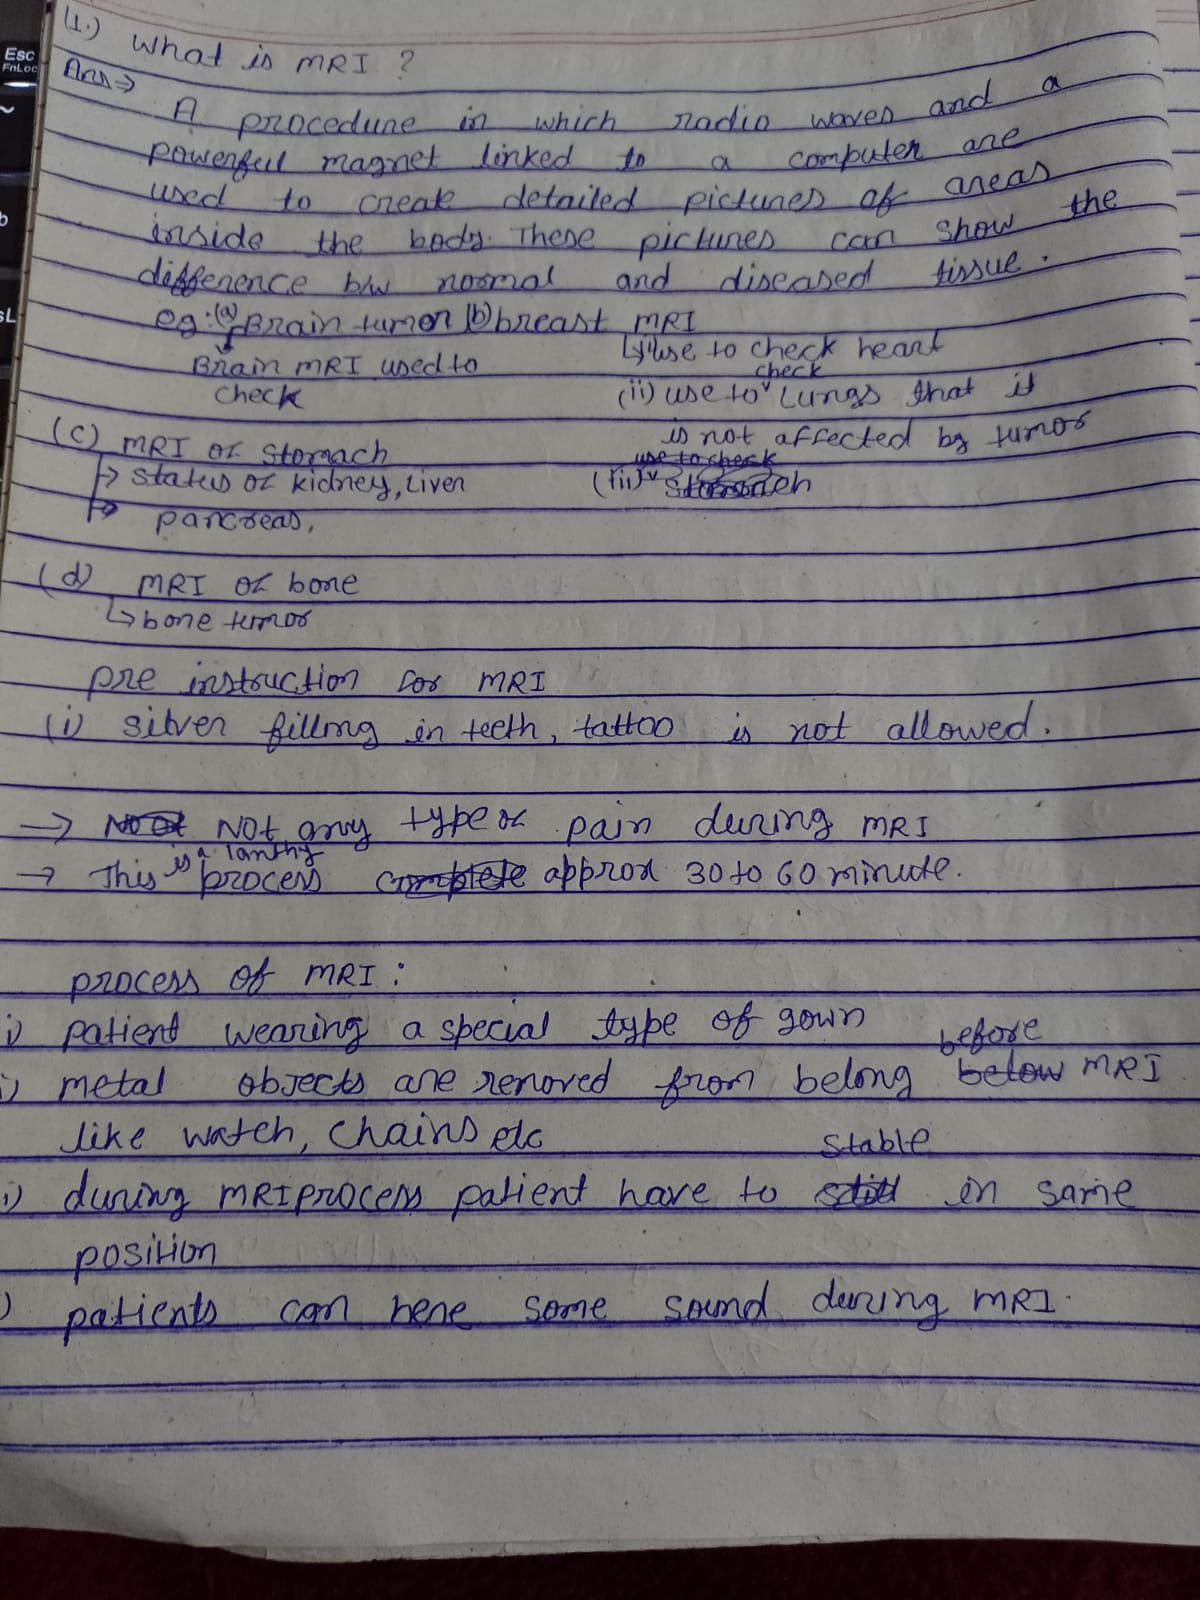 Esc
FnLoc
(1.) What is MRI ?
Ans→
A procedure in which radio waves and a
powerful magnet linked to a computer are
used to create detailed pictures of areas
inside the body. These pictures can show the
difference b/w normal and diseased tissue.
eg:(a) Brain tumor (b) breast MRI
Brain MRI used to
check
(i) use to check heart
(ii) use to check Lungs that it
is not affected by tumor
(c) MRI of Stomach
→ Status of kidney, Liver
→ pancreas,
use to check
(iii) Stomach
(d) MRI of bone
↳ bone tumor
pre instruction for MRI
(i) silver filling in teeth, tattoo is not allowed.
→ Not Not any type of pain during MRI
→ This is a lanthy process complete approx 30 to 60 minute.
process of MRI :
i) patient wearing a special type of gown
i) metal objects are removed from belong below before MRI
like watch, chains etc
i) during MRI process patient have to still stable in same
position
) patients can here some sound during MRI.